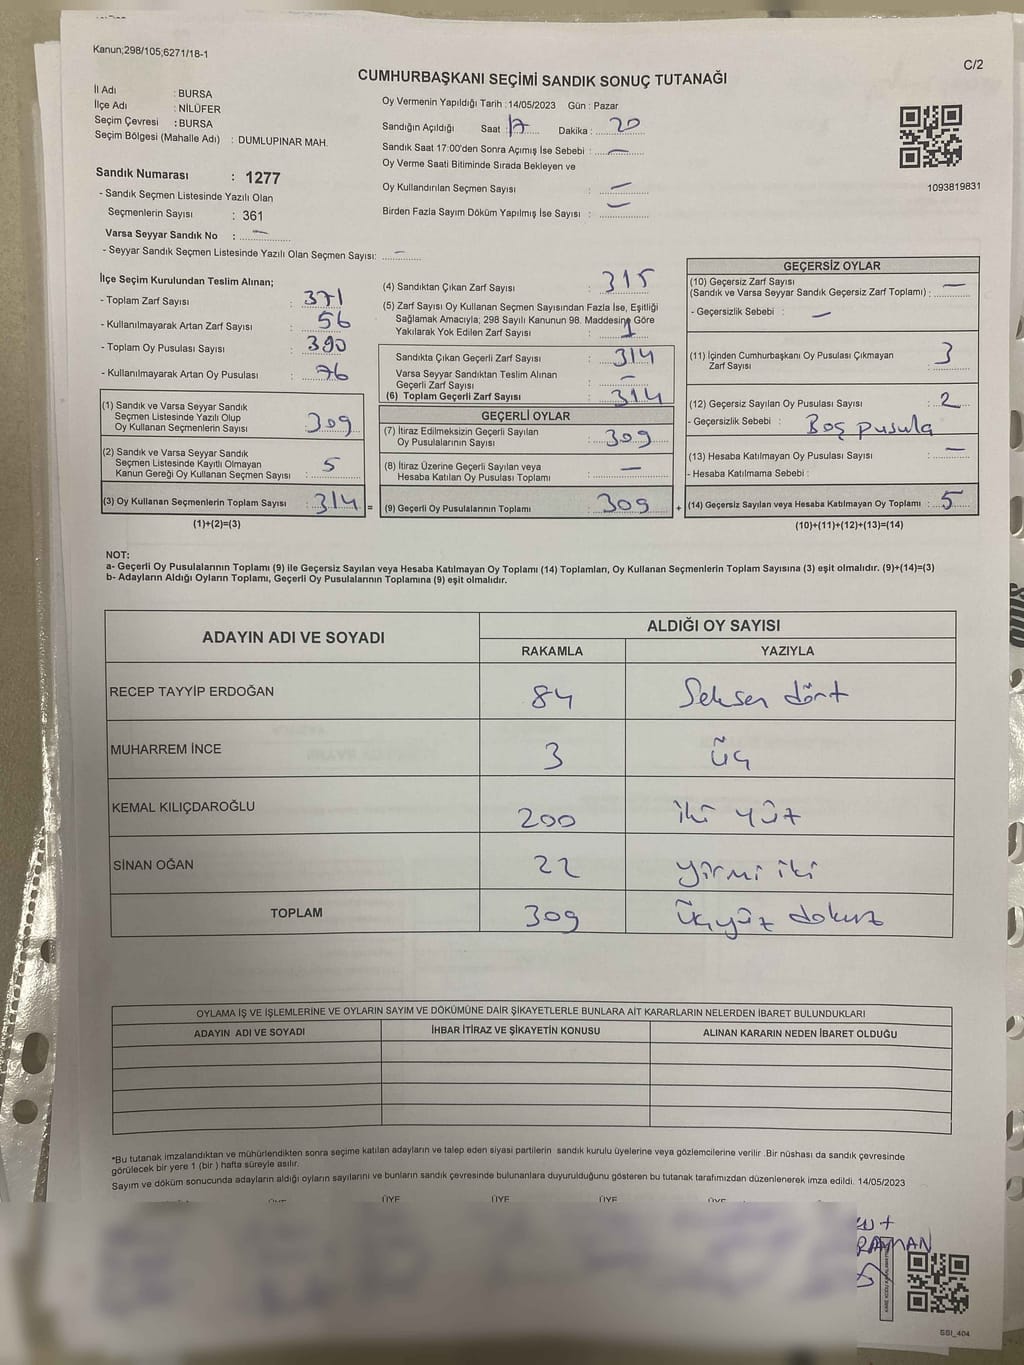 Kanun;298/105,6271/18-1
C/2
CUMHURBAŞKANI SEÇİMİ SANDIK SONUÇ TUTANAĞI
İl Adı : BURSA
İlçe Adı : NİLÜFER
Seçim Çevresi : BURSA
Seçim Bölgesi (Mahalle Adı) : DUMLUPINAR MAH.
Sandık Numarası : 1277
- Sandık Seçmen Listesinde Yazılı Olan
Seçmenlerin Sayısı : 361
Varsa Seyyar Sandık No : —
- Seyyar Sandık Seçmen Listesinde Yazılı Olan Seçmen Sayısı: —
Oy Vermenin Yapıldığı Tarih :14/05/2023 Gün : Pazar
Sandığın Açıldığı Saat : 17 Dakika : 20
Sandık Saat 17:00'den Sonra Açımış İse Sebebi : —
Oy Verme Saati Bitiminde Sırada Bekleyen ve
Oy Kullandırılan Seçmen Sayısı : —
Birden Fazla Sayım Döküm Yapılmış İse Sayısı : —
1093819831
İlçe Seçim Kurulundan Teslim Alınan;
- Toplam Zarf Sayısı : 371
- Kullanılmayarak Artan Zarf Sayısı : 56
- Toplam Oy Pusulası Sayısı : 390
- Kullanılmayarak Artan Oy Pusulası : 76
(1) Sandık ve Varsa Seyyar Sandık
Seçmen Listesinde Yazılı Olup
Oy Kullanan Seçmenlerin Sayısı : 309
(2) Sandık ve Varsa Seyyar Sandık
Seçmen Listesinde Kayıtlı Olmayan
Kanun Gereği Oy Kullanan Seçmen Sayısı : 5
(3) Oy Kullanan Seçmenlerin Toplam Sayısı : 314 =
(1)+(2)=(3)
(4) Sandıktan Çıkan Zarf Sayısı : 315
(5) Zarf Sayısı Oy Kullanan Seçmen Sayısından Fazla İse, Eşitliği
Sağlamak Amacıyla; 298 Sayılı Kanunun 98. Maddesine Göre
Yakılarak Yok Edilen Zarf Sayısı : 1
Sandıkta Çıkan Geçerli Zarf Sayısı : 314
Varsa Seyyar Sandıktan Teslim Alınan
Geçerli Zarf Sayısı : —
(6) Toplam Geçerli Zarf Sayısı : 314
GEÇERLİ OYLAR
(7) İtiraz Edilmeksizin Geçerli Sayılan
Oy Pusulalarının Sayısı : 309
(8) İtiraz Üzerine Geçerli Sayılan veya
Hesaba Katılan Oy Pusulası Toplamı : —
(9) Geçerli Oy Pusulalarının Toplamı : 309 +
GEÇERSİZ OYLAR
(10) Geçersiz Zarf Sayısı
(Sandık ve Varsa Seyyar Sandık Geçersiz Zarf Toplamı) : —
- Geçersizlik Sebebi : —
(11) İçinden Cumhurbaşkanı Oy Pusulası Çıkmayan
Zarf Sayısı : 3
(12) Geçersiz Sayılan Oy Pusulası Sayısı : 2
- Geçersizlik Sebebi : Boş pusula
(13) Hesaba Katılmayan Oy Pusulası Sayısı : —
- Hesaba Katılmama Sebebi :
(14) Geçersiz Sayılan veya Hesaba Katılmayan Oy Toplamı : 5
(10)+(11)+(12)+(13)=(14)
NOT:
a- Geçerli Oy Pusulalarının Toplamı (9) ile Geçersiz Sayılan veya Hesaba Katılmayan Oy Toplamı (14) Toplamları, Oy Kullanan Seçmenlerin Toplam Sayısına (3) eşit olmalıdır. (9)+(14)=(3)
b- Adayların Aldığı Oyların Toplamı, Geçerli Oy Pusulalarının Toplamına (9) eşit olmalıdır.
ADAYIN ADI VE SOYADI
ALDIĞI OY SAYISI
RAKAMLA YAZIYLA
RECEP TAYYİP ERDOĞAN 84 Seksen dört
MUHARREM İNCE 3 Üç
KEMAL KILIÇDAROĞLU 200 iki yüz
SİNAN OĞAN 22 yirmi iki
TOPLAM 309 Üçyüz dokuz
OYLAMA İŞ VE İŞLEMLERİNE VE OYLARIN SAYIM VE DÖKÜMÜNE DAİR ŞİKAYETLERLE BUNLARA AİT KARARLARIN NELERDEN İBARET BULUNDUKLARI
ADAYIN ADI VE SOYADI İHBAR İTİRAZ VE ŞİKAYETİN KONUSU ALINAN KARARIN NEDEN İBARET OLDUĞU
*Bu tutanak imzalandıktan ve mühürlendikten sonra seçime katılan adayların ve talep eden siyasi partilerin sandık kurulu üyelerine veya gözlemcilerine verilir .Bir nüshası da sandık çevresinde
görülecek bir yere 1 (bir ) hafta süreyle asılır.
Sayım ve döküm sonucunda adayların aldığı oyların sayılarını ve bunların sandık çevresinde bulunanlara duyurulduğunu gösteren bu tutanak tarafımızdan düzenlenerek imza edildi. 14/05/2023
ÜYE ÜYE ÜYE ÜYE ÜYE
RAMAN
SSI_404